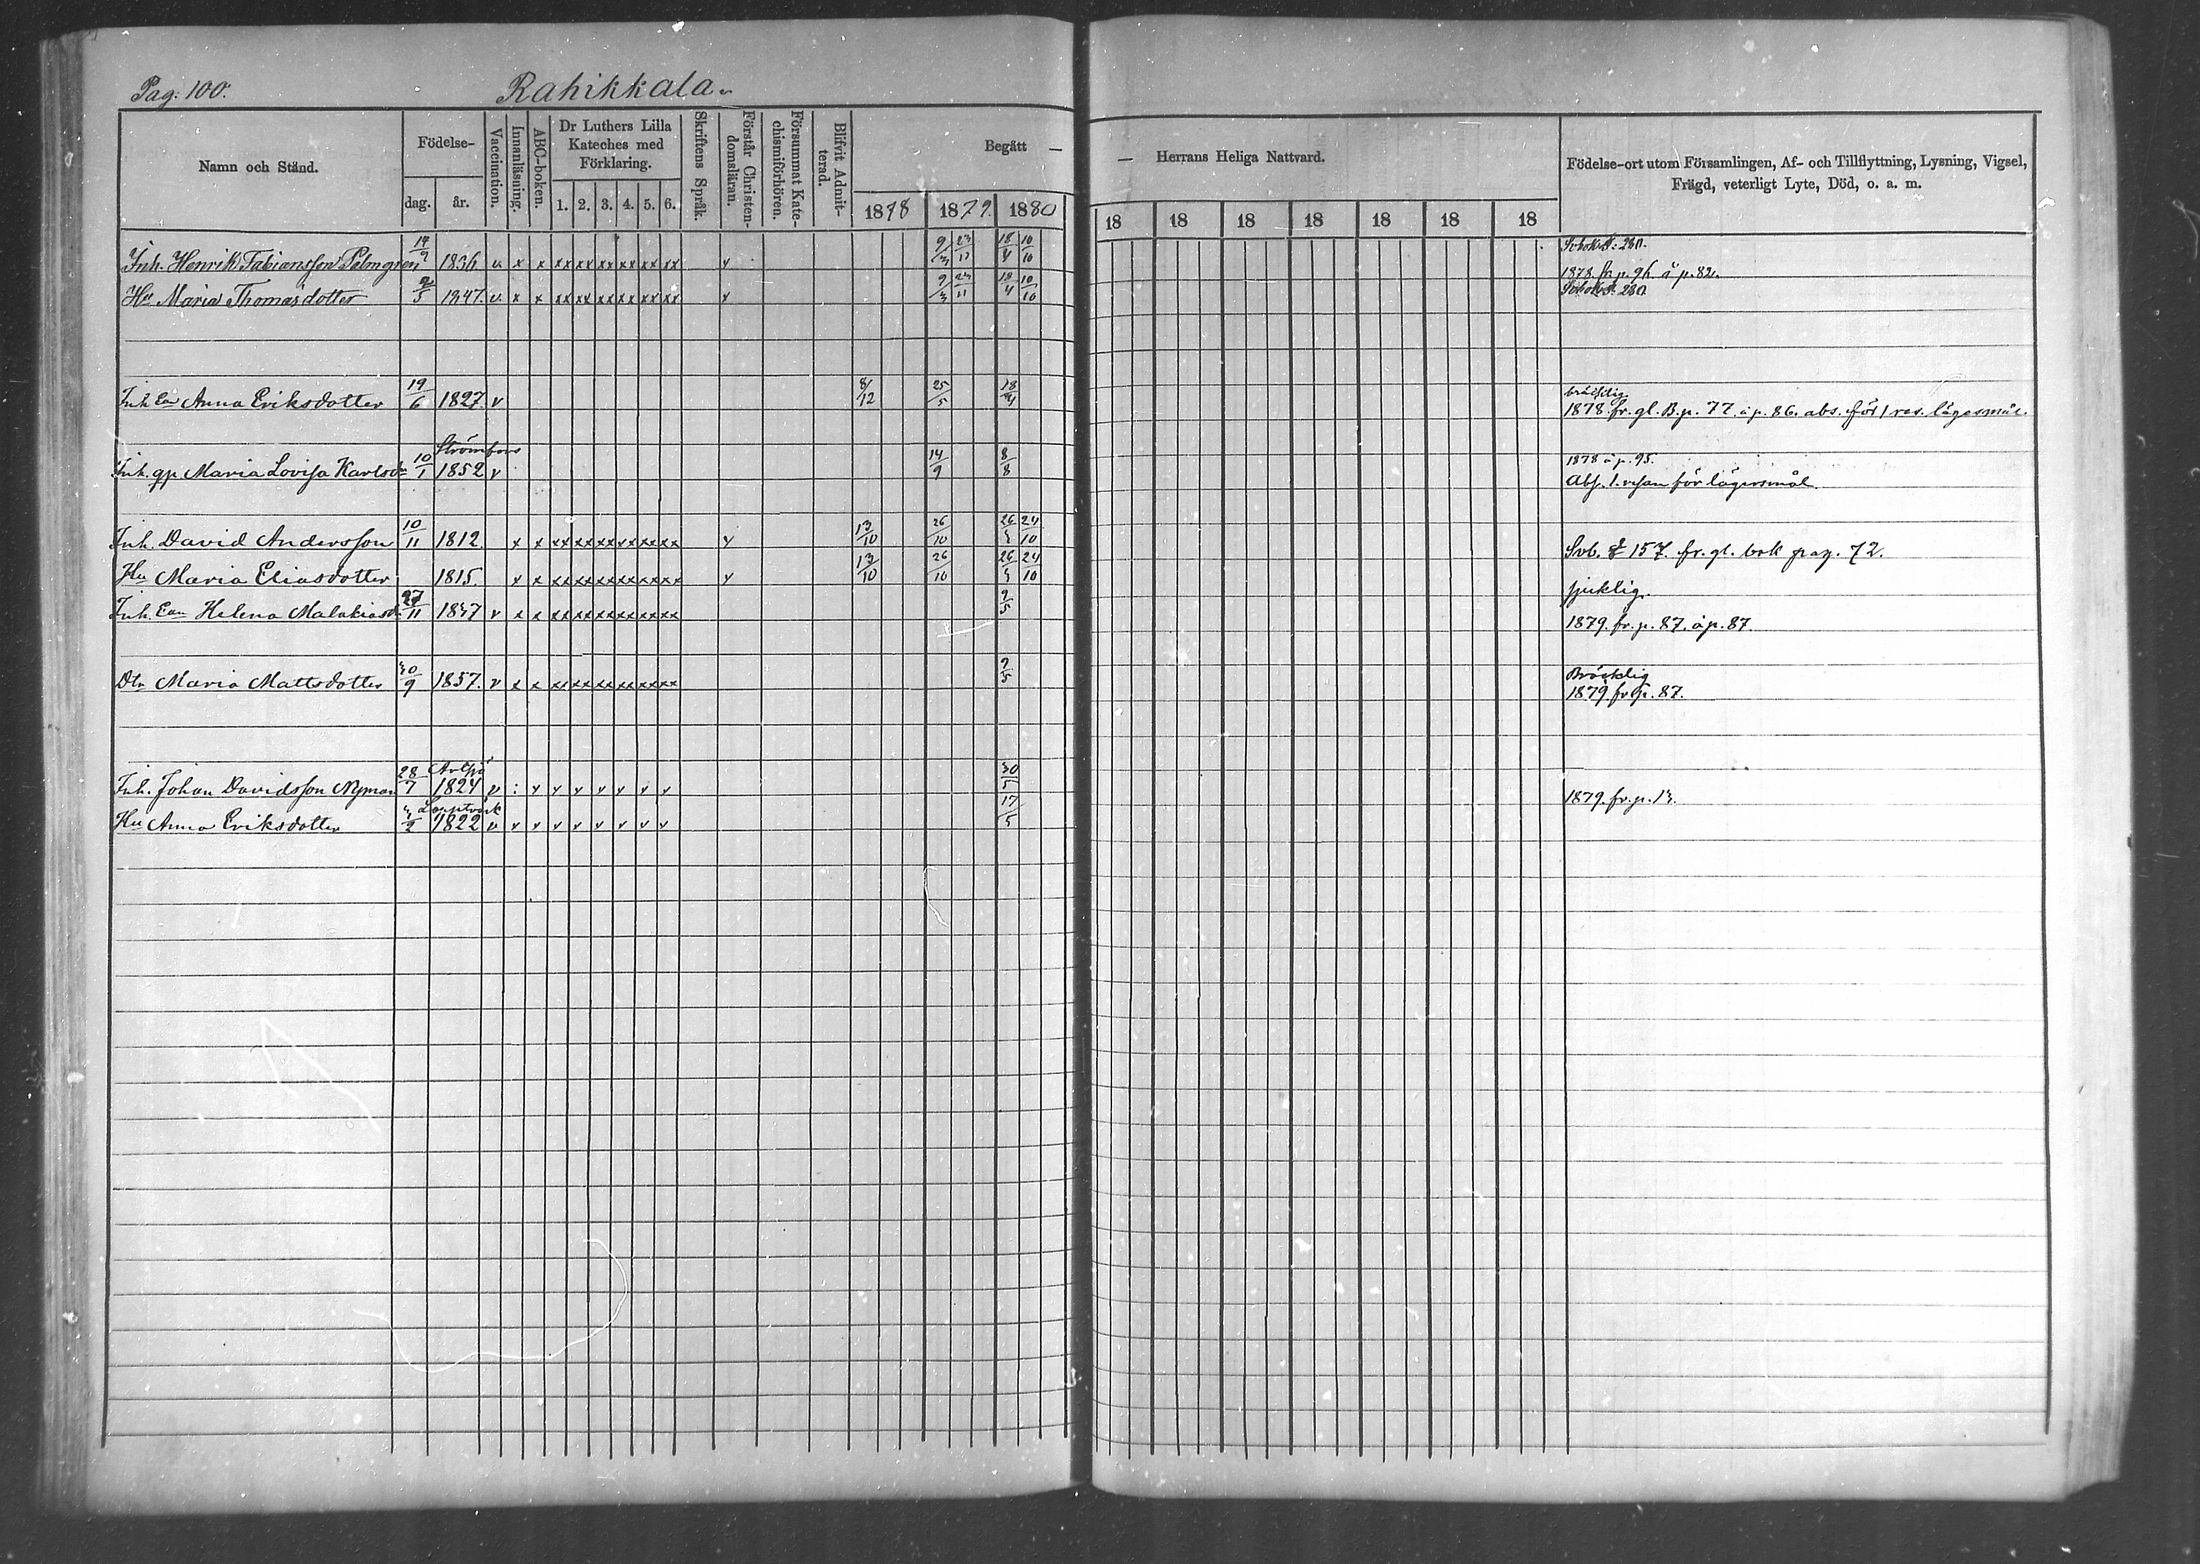 Pag: 100. Rahikkala.
Namn och Stånd. Födelse- dag. år. Vaccination. Innanläsning. ABC-boken. Dr Luthers Lilla Kateches med Förklaring. 1. 2. 3. 4. 5. 6. Skriftens Språk. Förstår Christendomsläran. Försummat Katechismiförhören. Blifvit Admitterad. Begått — 1878 1879. 1880
— Herrans Heliga Nattvard. 18 18 18 18 18 18 18
Födelse-ort utom Församlingen, Af- och Tillflyttning, Lysning, Vigsel,
Frägd, veterligt Lyte, Död, o. a. m.
Inh. Henrik Fabiansson Palmgren 1836 v x x xx xx xx xx xx xx v 9/3 23/11 18/4 10/10
1878 fr. p. 96. å p. 82.
Hu Maria Thomasdotter 2/5 1847. v. x x xx xx xx xx xx xx x 9/3 23/11 18/4 10/10
Inh Ean Anna Eriksdotter 19/6 1827. v 8/12 25/5 18/4
bräcklig
1878. fr. gl. B. p. 77. å p. 86. abs. för 1 res. lägersmål.
Strömfors
Inh. qp. Maria Lovisa Karlsdr 10/1 1852 v 14/9 8/8
1878 å p. 95.
Abs. 1. resan för lägersmål.
Inh. David Andersson 10/11 1812. x x xx xx xx xx xx xx v 13/10 26/10 24/10
Svb. 157. fr. gl. bok pag. 72.
Hu Maria Eliasdotter 1815. x x xx xx xx xx xx xx v 13/10 26/10 24/10
sjuklig.
Inh. Ean Helena Malakiasdr. 27/11 1837 v x x xx xx xx xx xx xx 9/5
1879. fr. p. 87. å p. 87.
Dtr Maria Mattsdotter 30/9 1857. v x x xx xx xx xx xx xx 9/5
Bräcklig
1879 fr. p. 87.
Artsjö
Inh. Johan Davidsson Nyman 28/7 1824 v : v v v v v v v 30/5
1879. fr. p. 13.
Hu Anna Eriksdotter 1822 v v v v v v v v v 17/5